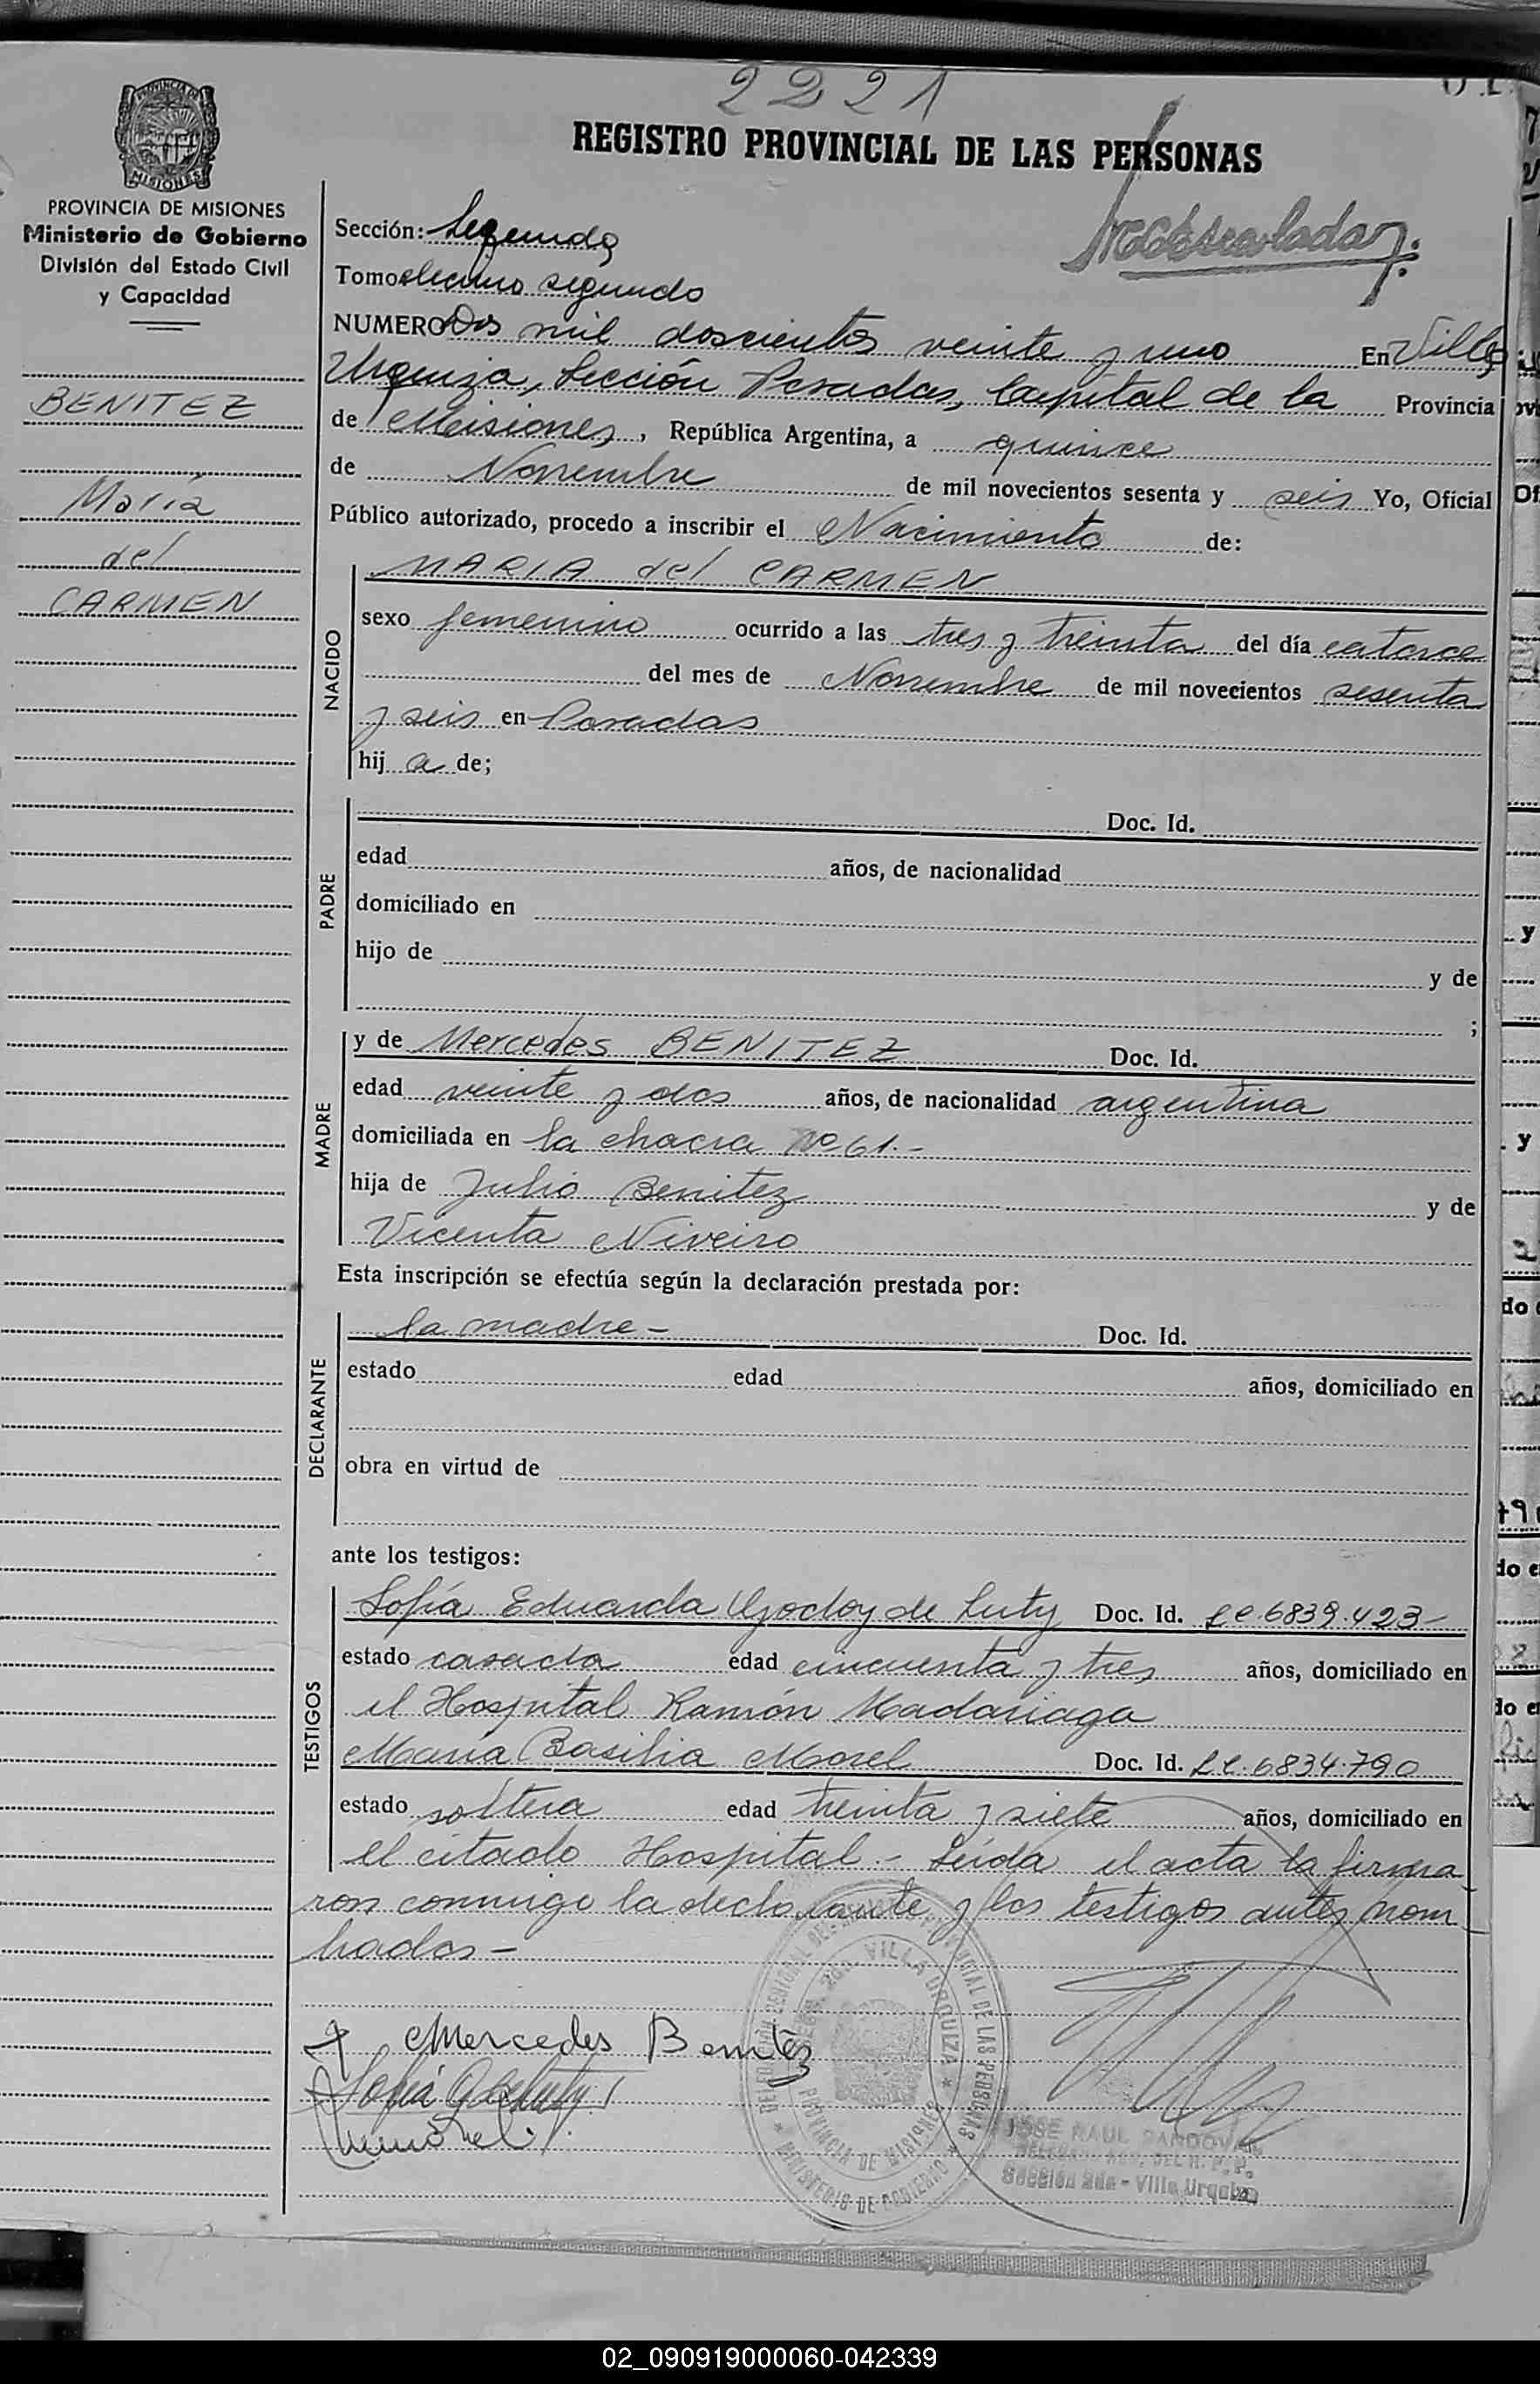 2221
REGISTRO PROVINCIAL DE LAS PERSONAS
PROVINCIA DE MISIONES
Ministerio de Gobierno
División del Estado Civil
y Capacidad
BENITEZ
María
del
CARMEN
Sección: Segunda
Tomo decimo segundo
NUMERO Dos mil doscientos veinte y uno En Villa
Urquiza, Sección Posadas, Capital de la Provincia
de Misiones, República Argentina, a quince
de Noviembre de mil novecientos sesenta y seis Yo, Oficial
Público autorizado, procedo a inscribir el Nacimiento de:
NACIDO
MARIA del CARMEN
sexo femenino ocurrido a las tres y treinta del día catorce
del mes de Noviembre de mil novecientos sesenta
y seis en Posadas
hija de;
PADRE
Doc. Id.
edad años, de nacionalidad
domiciliado en
hijo de y de
;
MADRE
y de Mercedes BENITEZ Doc. Id.
edad veinte y dos años, de nacionalidad argentina
domiciliada en la chacra Nº 61.-
hija de Julio Benitez y de
Vicenta Niveiro
Esta inscripción se efectúa según la declaración prestada por:
DECLARANTE
la madre - Doc. Id.
estado edad años, domiciliado en
obra en virtud de
ante los testigos:
TESTIGOS
Sofía Eduarda Godoy de Luty Doc. Id. LC.6839.423-
estado casada edad cincuenta y tres años, domiciliado en
el Hospital Ramón Madariaga
María Basilia Morel Doc. Id. LC.6834.790
estado soltera edad treinta y siete años, domiciliado en
el citado Hospital.- Leída el acta la firma
ron conmigo la declarante y los testigos antes nom
brados -
Mercedes Benitez
Sofia G de Luty
VILLA URQUIZA
PROVINCIA DE MISIONES
MINISTERIO DE GOBIERNO
JOSE RAUL SANDOVAL
Sección 2da - Villa Urquiza
02_090919000060-042339